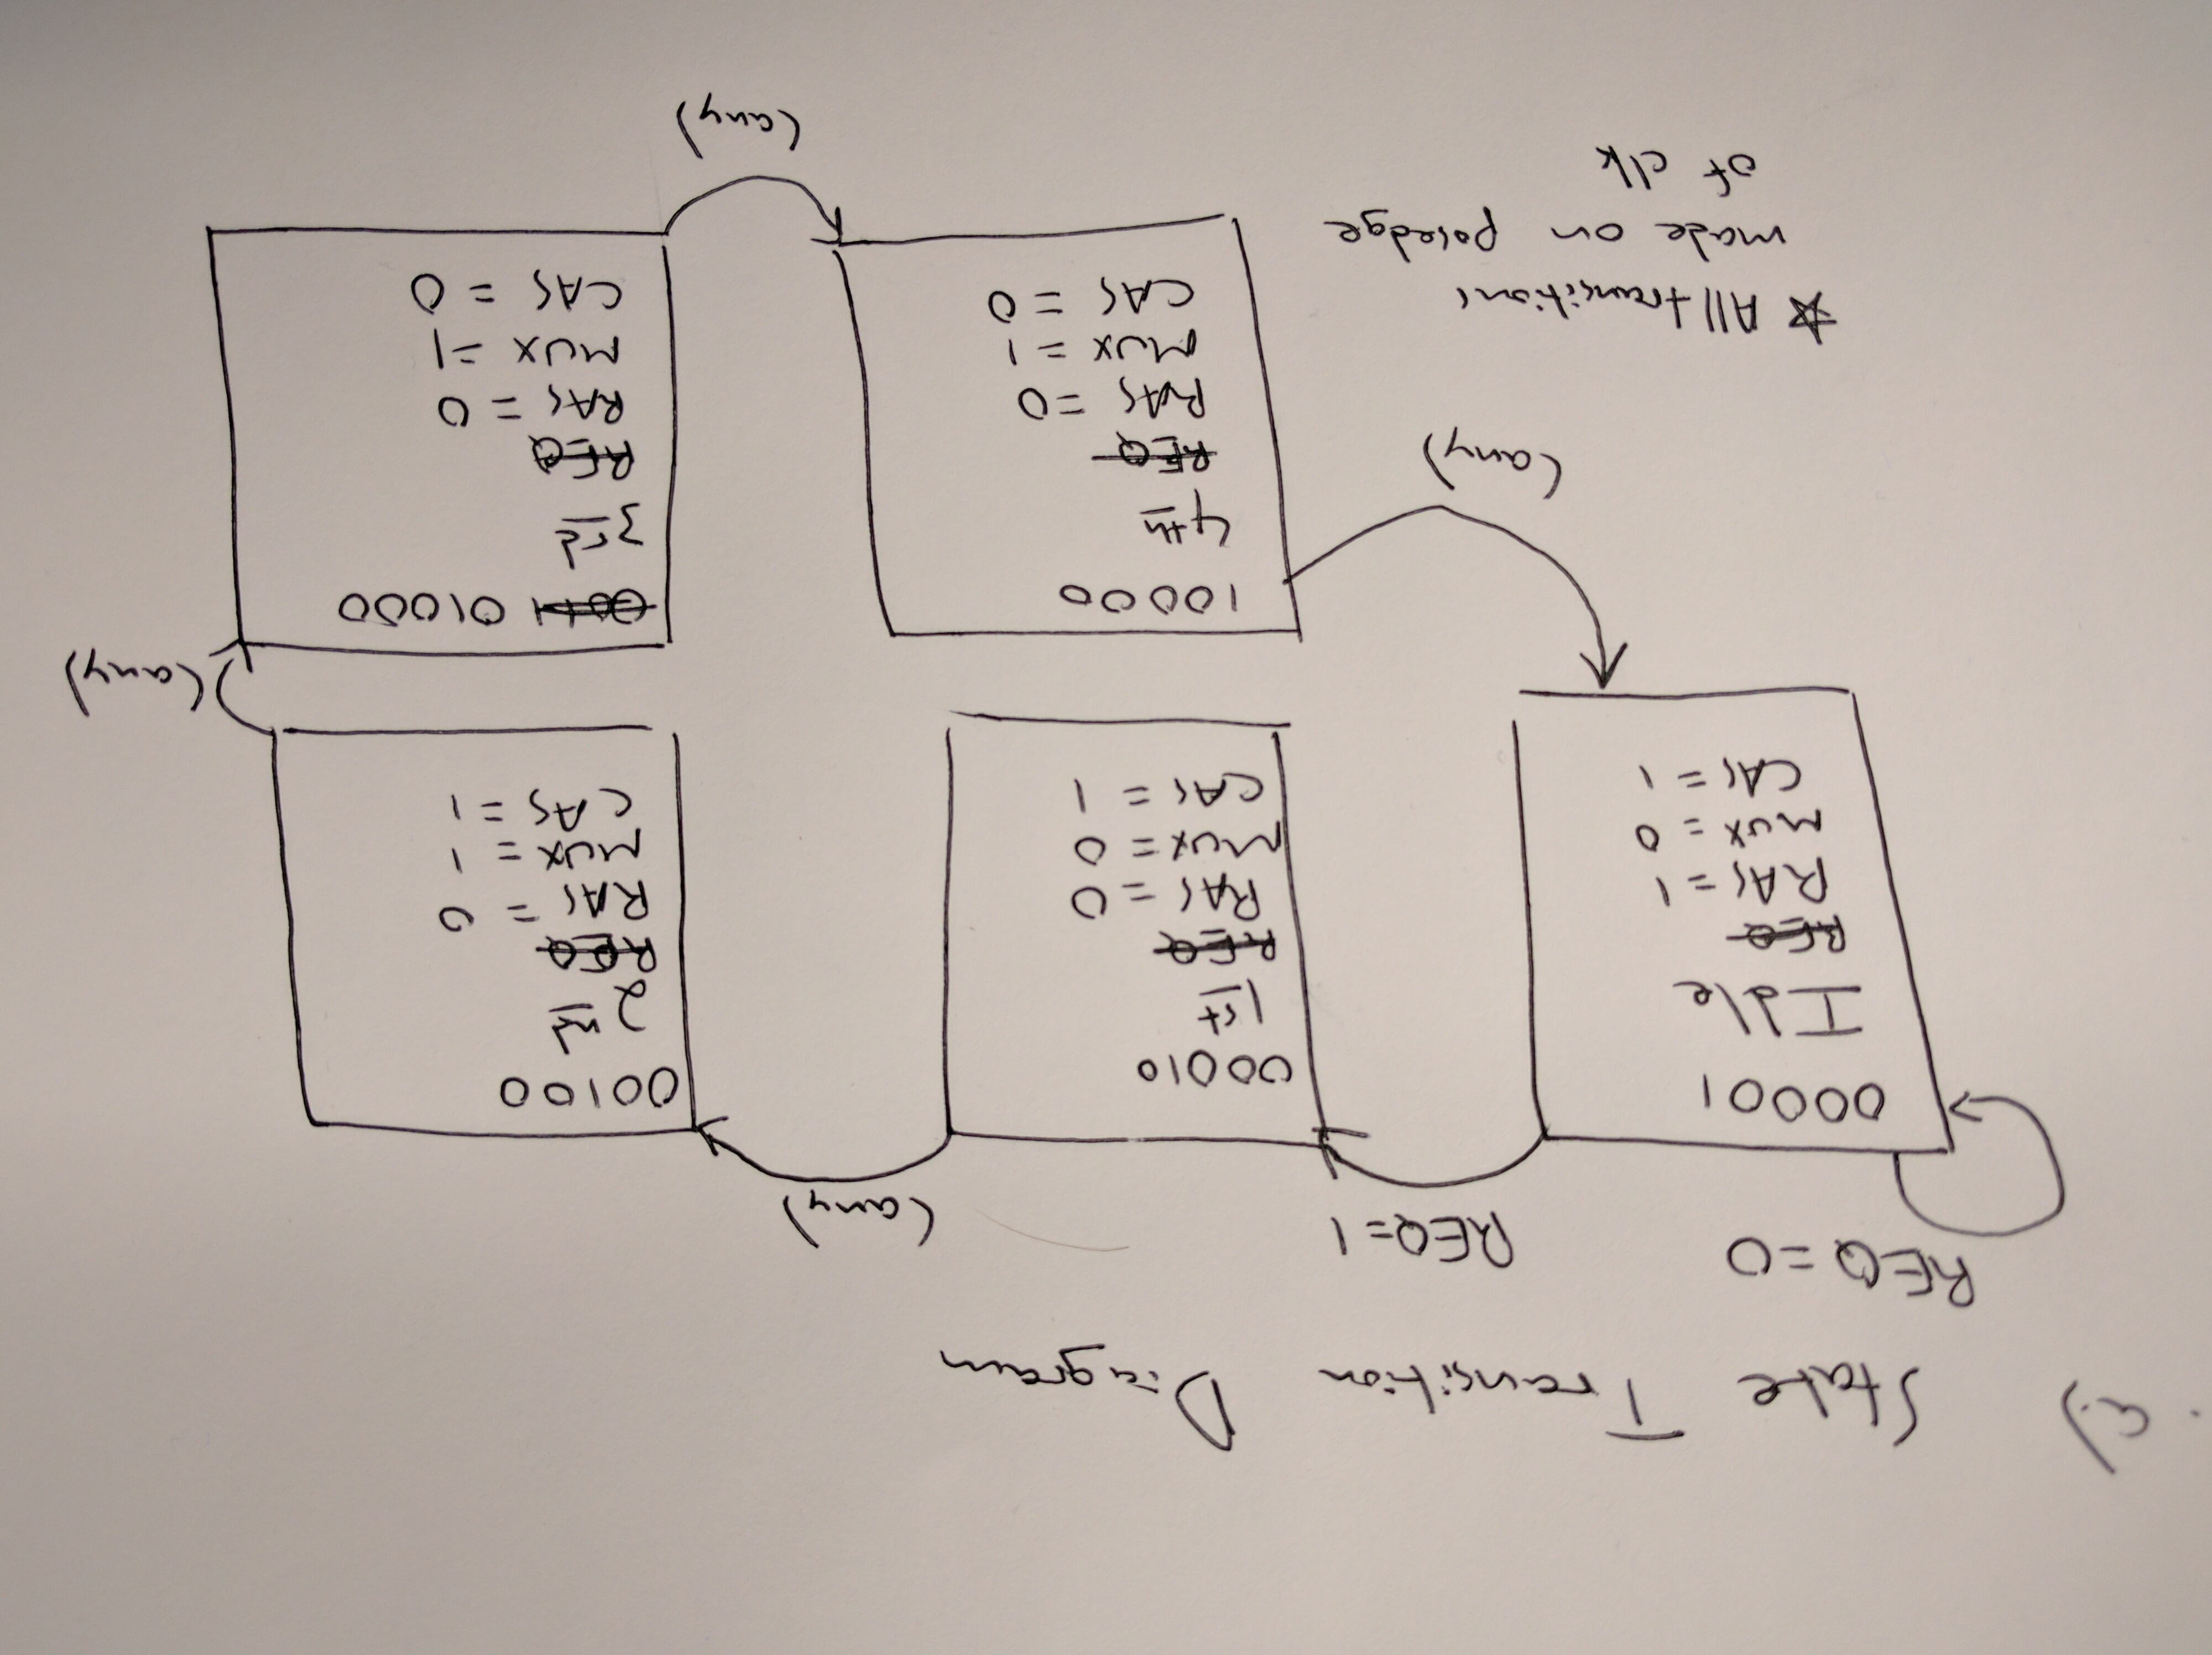 a) State Transition Diagram
REQ = 0
REQ=1
(any)
00001
Idle
REQ
RAS = 1
MUX = 0
CAS = 1
00010
1st
REQ
RAS = 0
MUX = 0
CAS = 1
00100
2nd
REQ
RAS = 0
MUX = 1
CAS = 1
(any)
(any)
10000
4th
REQ
RAS = 0
MUX = 1
CAS = 0
01000
3rd
REQ
RAS = 0
MUX = 1
CAS = 0
(any)
☆ All transitions
made on posedge
of clk